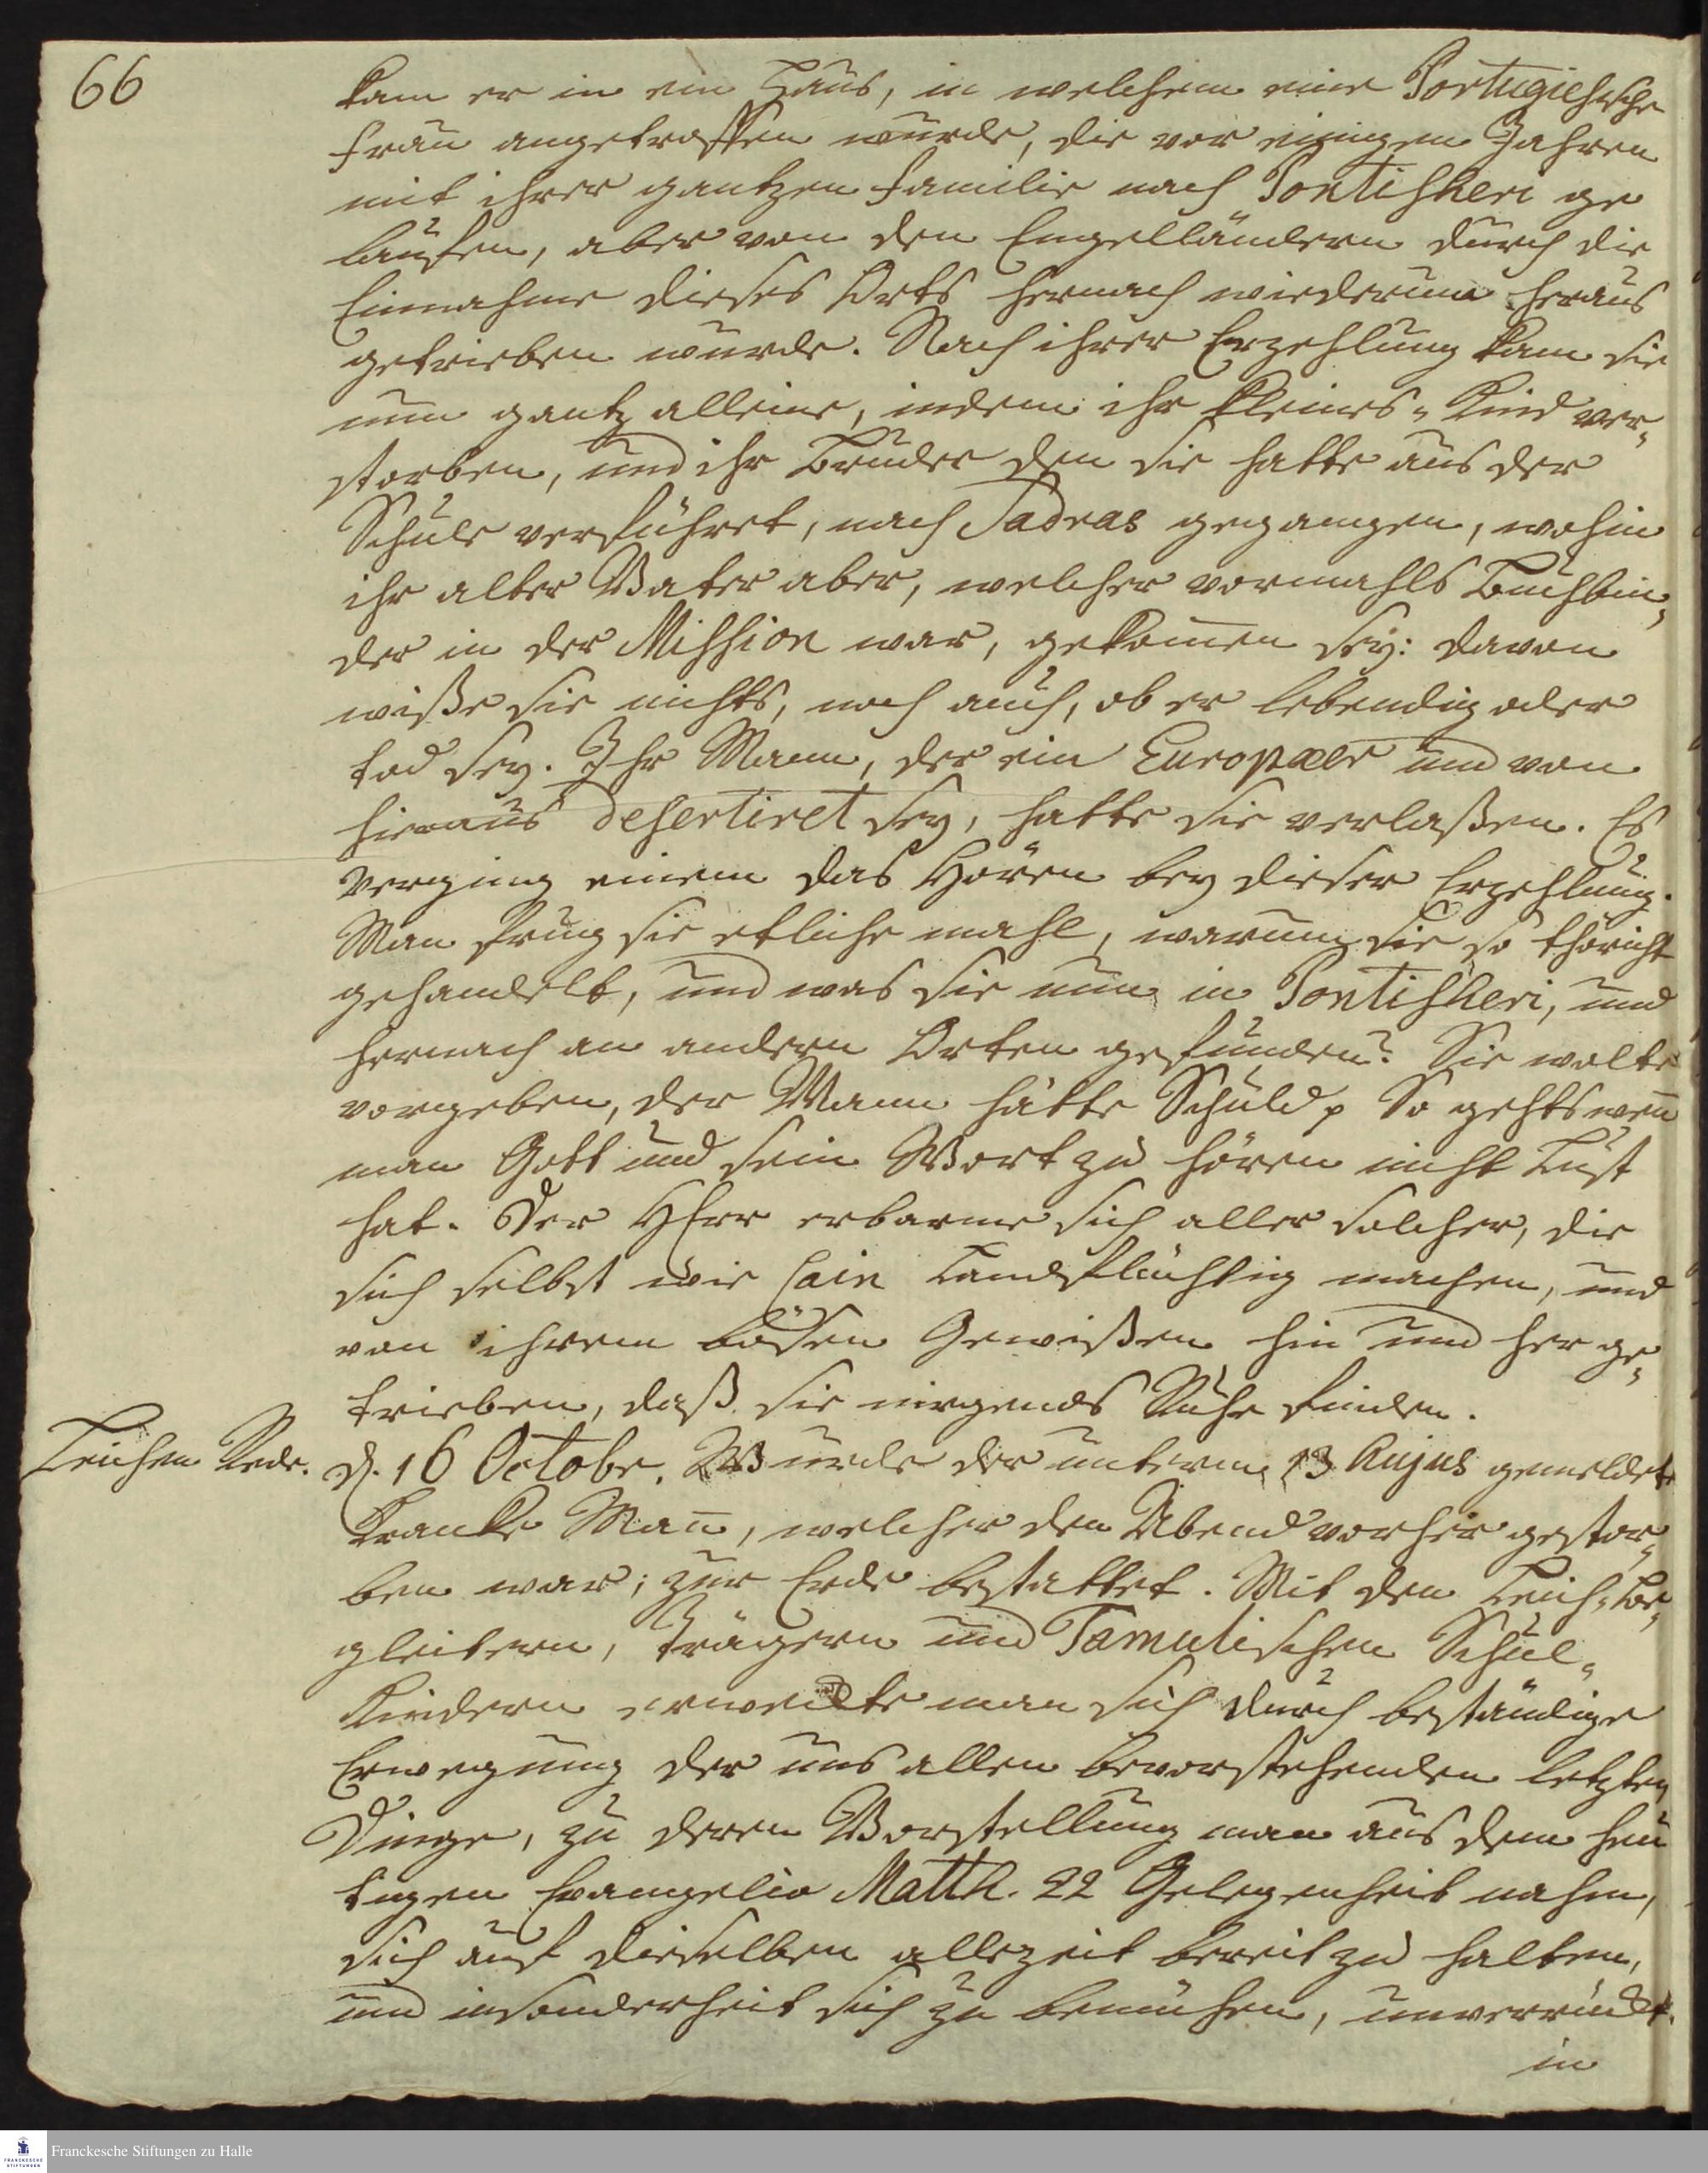 66
kam er in ein Hauß, in welchem eine Portugiesische
Frau angetroffen wurde, die vor einigen Jahren
mit ihrer gantzen Familie nach Pontischeri ge
lauffen, aber von den Engelländern durch die
Einnahme dieses Orts hernach wiederum heraus
getrieben wurde. Nach ihrer Erzehlung kam sie
nun gantz alleine, indem ihr kleines Kind ver¬
storben, und ihr Bruder den sie hatte aus der
Schule verführet, nach Sadras gegangen, wohin
ihr alter Vater aber, welcher vormahls Buchbin¬
der in der Mission war, gekom̄en sey: davon
wiße sie nichts, noch auch, ob er lebendig oder
tod sey. Ihr Mann, der ein Europæer und von
hieraus desertiret sey, hatte sie verlaßen. Es
verging einem das Hören bey dieser Erzehlung.
Man frug sie etliche mahl, warum sie so thöricht
gehandelt, und was sie nun in Pontischeri, und
hernach an andern Orten gefunden? Sie wolte
vorgeben, der Mann hätte Schuld p So gehts wen̄
man Gott und sein Wort zu hören nicht Lust
hat. Der HErr erbarme sich aller solcher, die
sich selbst wie Cain Landflüchtig machen, und
von ihrem bösen Gewißen hin und her ge¬
trieben, daß sie nirgends Ruhe finden.
Leichen Rede.
d. 16 Octobr. Wurde der unterm 13 hujus gemeldete
Krancke Man̄, welcher den Abend vorher gestor¬
ben war; zur Erde bestattet. Mit den Leich-Be¬
gleitern, Trägern und Tamulischen Schul¬
Kindern erweckte man sich durch beständige
Erwegung der uns allen bevorstehenden letzten
Dinge, zu deren Vorstellung man aus dem heu
tigen Evangelio Matth. 22 Gelegenheit nahm,
sich auf dieselben allezeit bereit zu halten,
und insonderheit sich zu bemühen, unverrückt
in
Franckesche Stiftungen zu Halle